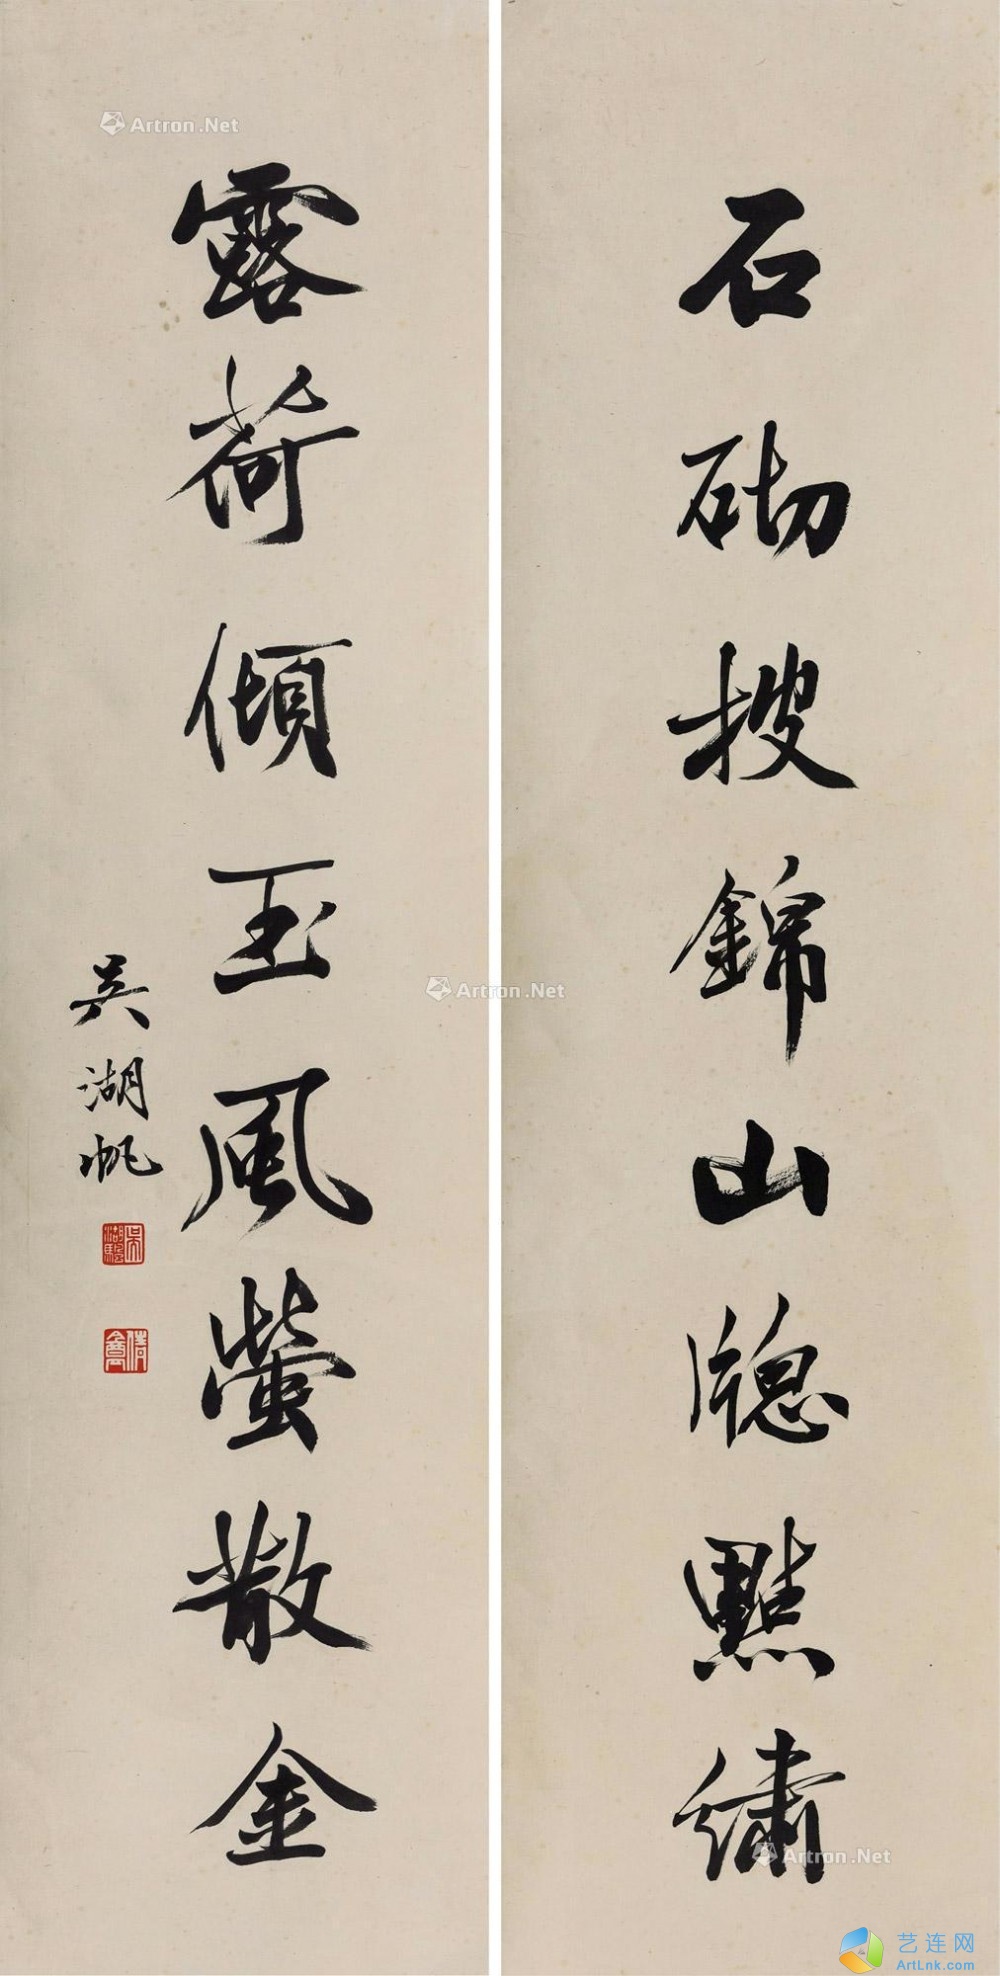 石砌披錦山牕點繡
露荷傾玉風螢散金
吳湖帆
吳湖颿
倩盦
Artron.Net
Artron.Net
Artron.Net
艺连网
ArtLnk.com